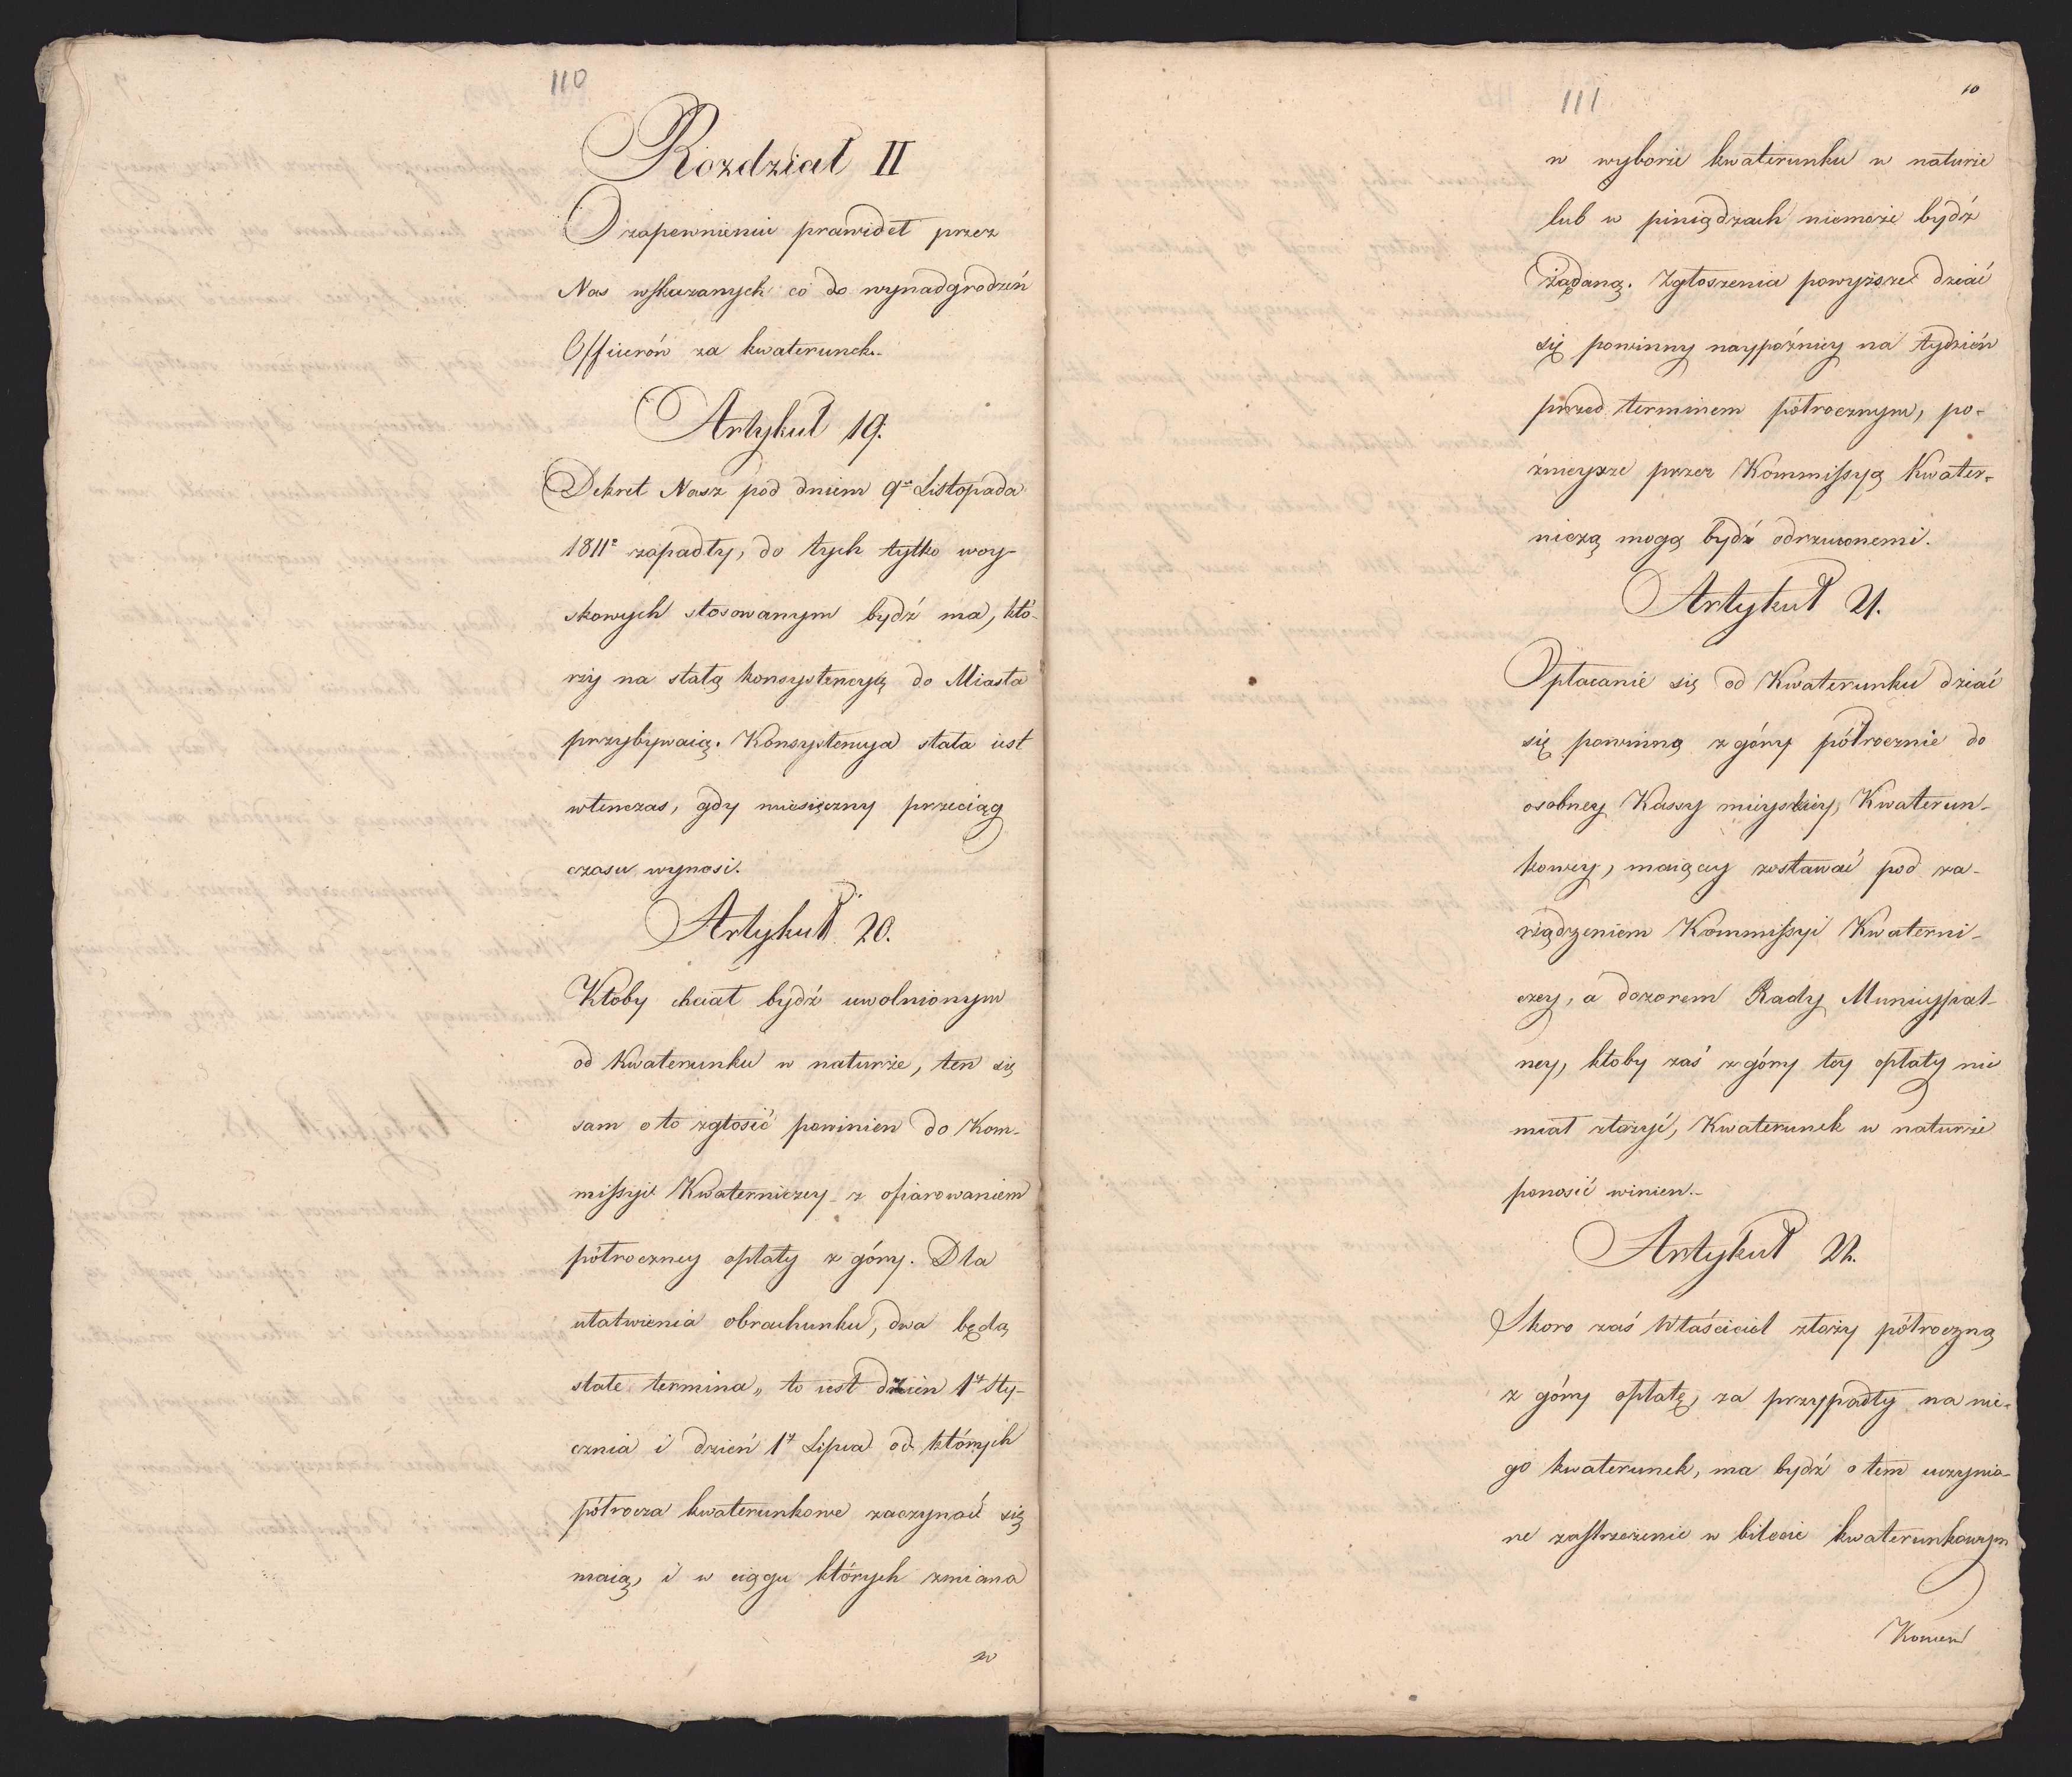 110
Rozdział II
O zapewnieniu prawideł przez
Nas wskazanych co do wynadgrodzeń
Officerów za kwaterunek.
Artykuł 19.
Dekret Nasz pod dniem 9º Listopada
1811º zapadły, do tych tylko woy-
skowych stosowanym bydź ma, któ-
rzy na stałą konsystencyą do Miasta
przybywaią. Konsystencya stała iest
wtenczas, gdy miesięczny przeciąg
czasu wynosi.
Artykuł 20.
Ktoby chciał bydź uwolnionym
od Kwaterunku w naturze, ten się
sam o to zgłosić powinien do Kom-
missyi Kwaterniczey z ofiarowaniem
półroczney opłaty z góry. Dla
ułatwienia obrachunku, dwa będą
stałe termina, to iest dzień 1º Sty-
cznia i dzień 1º Lipca od których
półrocza kwaterunkowe zaczynać się
maią, i w ciągu których zmiana
w
111
10
w wyborze kwaterunku w naturze
lub w pieniądzach niemoże bydź
żądaną. Zgłoszenia powyższe dziać
się powinny naypóźniey na tydzień
przed terminem półrocznym, po-
źnieysze przez Kommissyą Kwater-
niczą mogą bydź odrzuconemi.
Artykuł 21.
Opłacanie się od Kwaterunku dziać
się powinno z góry półrocznie do
osobney Kassy mieyskiey, Kwaterun-
kowey, maiącey zostawać pod za-
rządzeniem Kommissyi Kwaterni-
czey, a dozorem Rady Municypal-
ney, ktoby zaś z góry tey opłaty nie
miał złożyć, Kwaterunek w naturze
ponosić winien.
Artykuł 22.
Skoro zaś Właściciel złoży półroczną
z góry opłatę, za przypadły na nie-
go kwaterunek, ma bydź o tem uczynio-
ne zastrzeżenie w bilecie kwaterunkowym